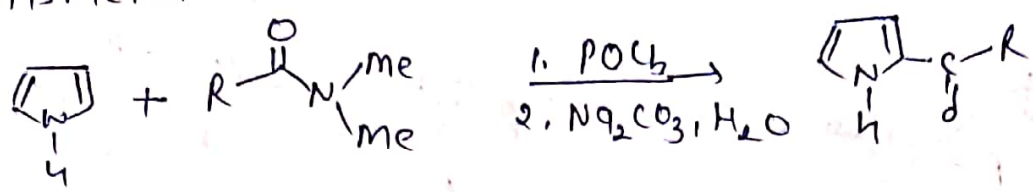 O
N
H
+
R
N
Me
Me
1. POCl3
2. Na2CO3, H2O
N
H
C
R
O